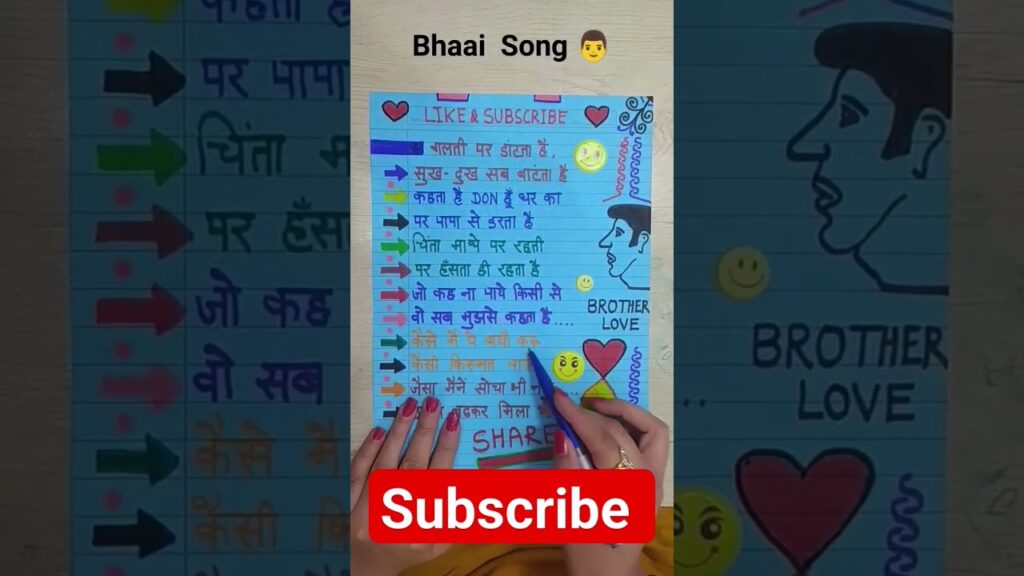 Bhaai Song 👨
LIKE & SUBSCRIBE
गलती पर डांटता है,
सुख-दुख सब बाटंता है
कहता है DON हूँ घर का
पर पापा से डरता है
चिंता माथे पर रहती
पर हँसता ही रहता है
जो कह ना पाये किसी से
वो सब मुझसे कहता है....
BROTHER
LOVE
कैसे मैं ये
कैसी किस्मत
जैसा मैंनें सोचा भी
बढकर मिला
SHARE
Subscribe